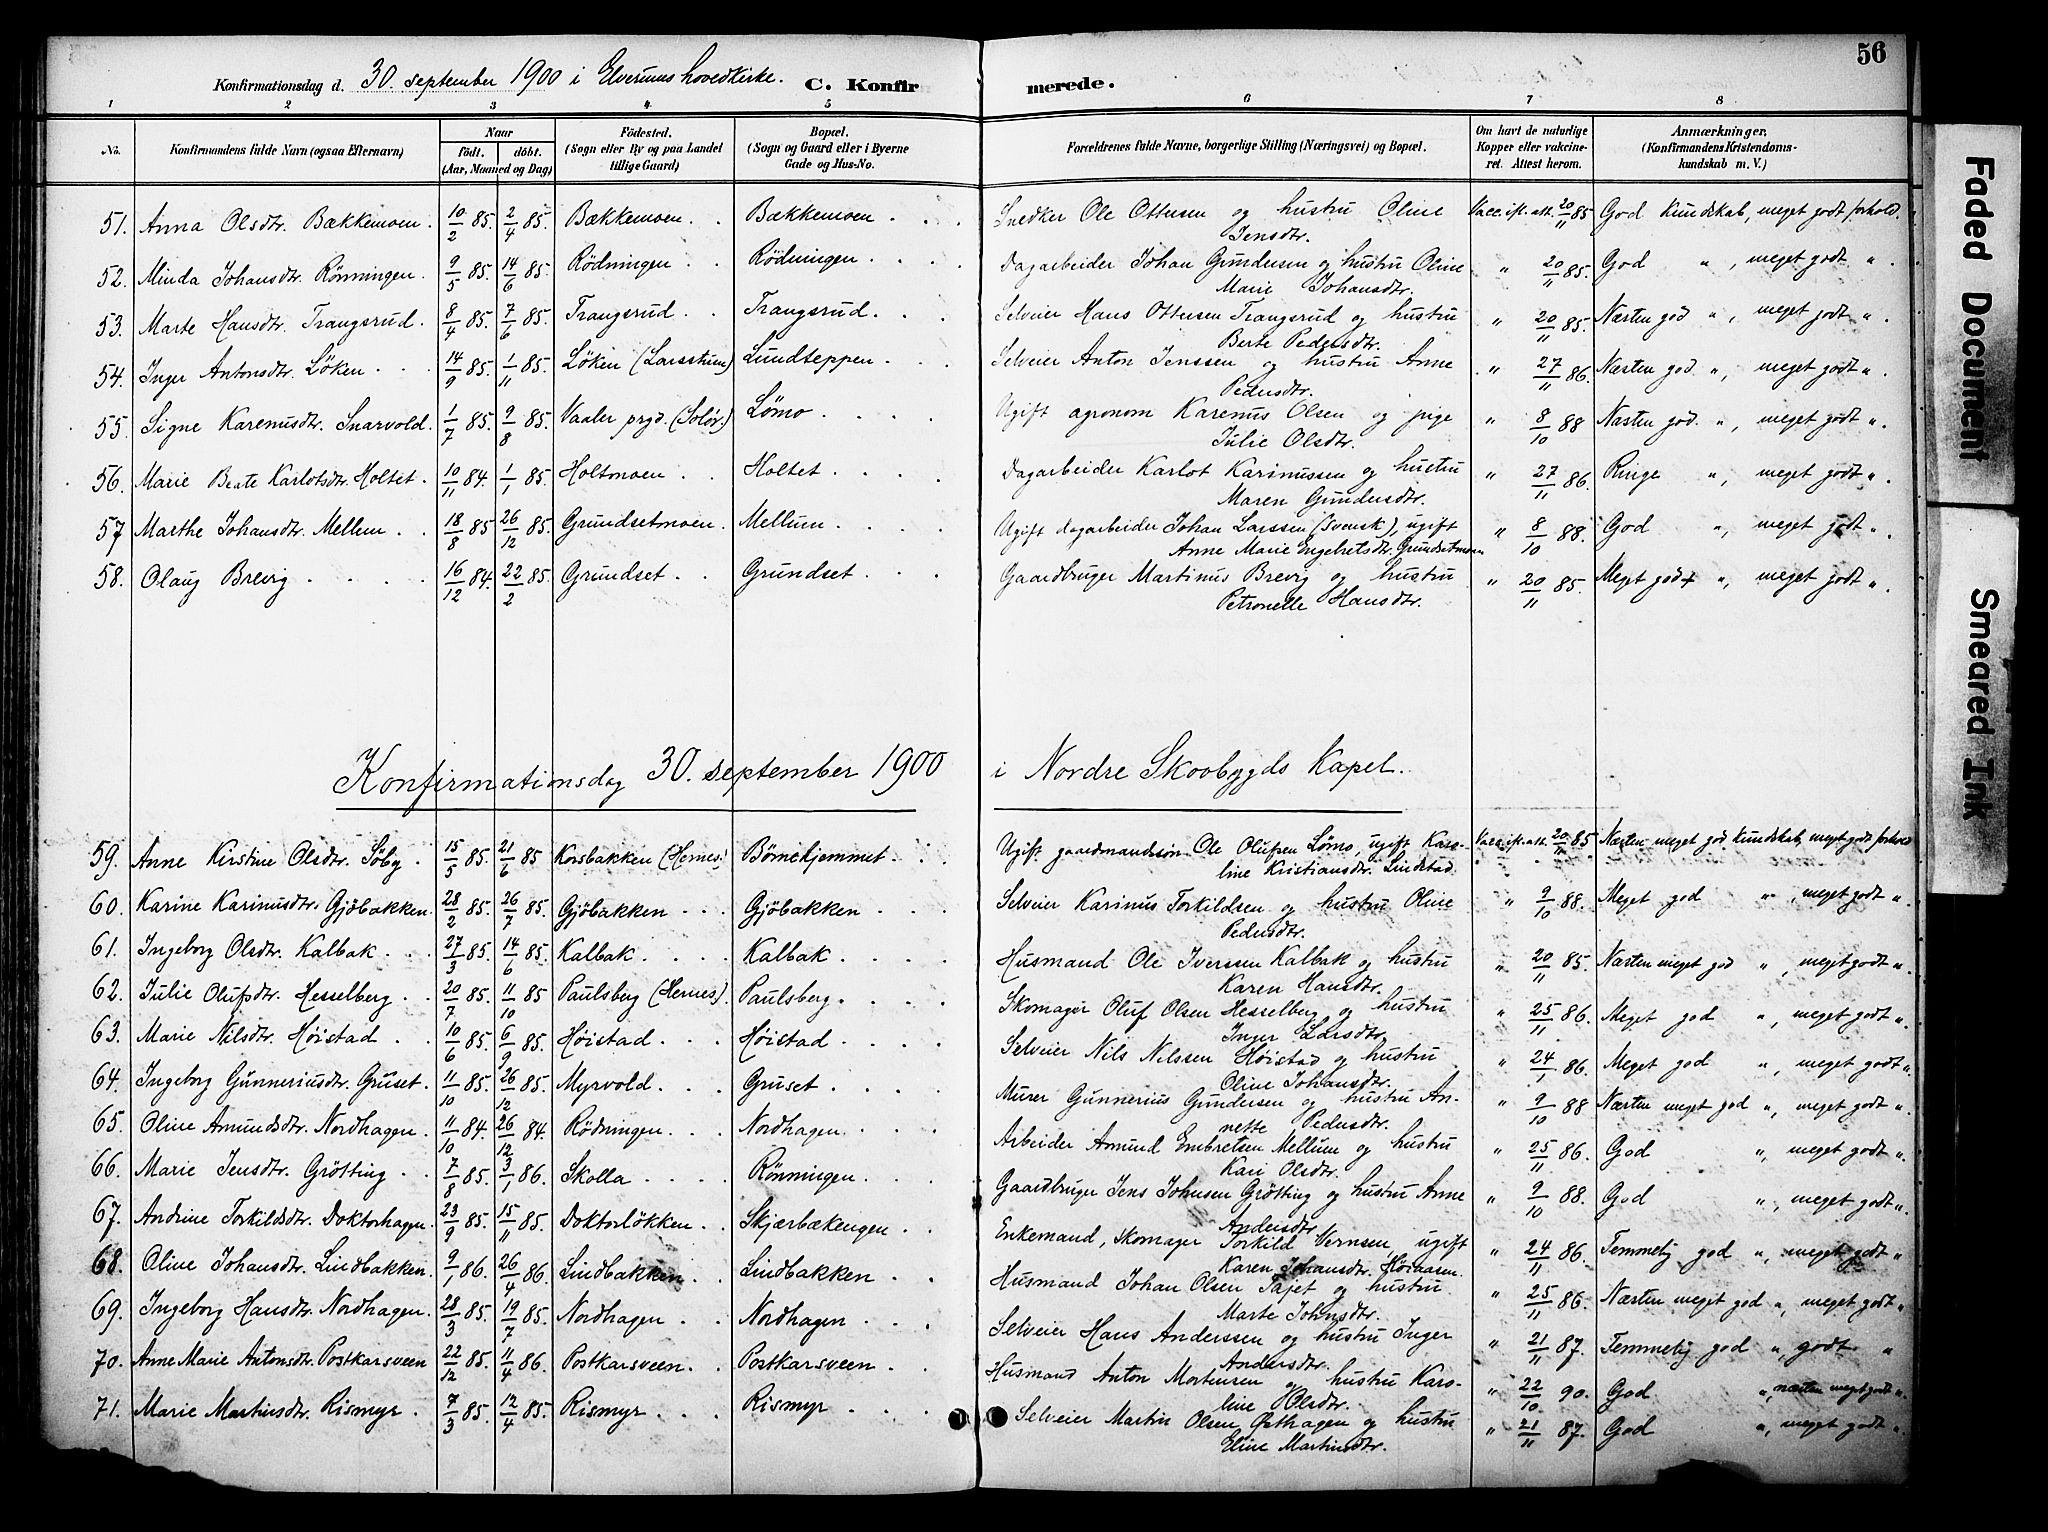 56
Konfirmationsdag d. 30. september 1900 i Elverums hovedkirke. C. Konfirmerede.
1 2 3 4 5 6 7 8
No. Konfirmandens fulde Navn (ogsaa Efternavn) Naar født. døbt. (Aar, Maaned og Dag) Fødested. (Sogn eller By og paa Landet tillige Gaard) Bopæl. (Sogn og Gaard eller i Byerne Gade og Hus-No. Forældrenes fulde Navne, borgerlige Stilling (Næringsvei) og Bopæl. Om havt de naturlige Kopper eller vakcineret. Attest herom. Anmærkninger. (Konfirmandens Kristendomskundskab m. V.)
51. Anna Olsdtr. Bækkemoen. 10/2 85. 2/4 85. Bækkemoen. Bækkemoen Snedker Ole Ottersen og hustru Oline Jensdtr. Vacc. ifl. att. 20/11 85 God kundskab, meget godt forhold.
52. Minda Johansdtr. Rönningen. 9/5 85. 14/6 85. Rödningen Rödningen Dagarbeider Johan Gundersen og hustru Oline Marie Johansdtr. " 20/11 85. God ", meget godt ".
53. Marte Hansdtr. Trangsrud. 8/4 85. 7/6 85. Trangsrud Trangsrud. Selveier Hans Ottersen Trangsrud og hustru Berte Pedersdtr. " 20/11 85. Næsten god ", meget godt ".
54. Inger Antonsdtr. Löken 14/9 85. 1/11 85. Löken (Larsstuen) Lundteppen Selveier Anton Jenssen og hustru Anne Pedersdtr. " 27/11 86. Næsten god ", meget godt ".
55. Signe Karenusdtr. Snarvold. 1/7 85. 9/8 85. Vaaler prgd. (Solör.) Lömo Ugift agronom Karenus Olsen og pige Julie Olsdtr. " 8/10 88 Næsten god. ", meget godt ".
56. Marie Beate Karlotsdtr. Holtet. 10/11 84. 1/1 85. Holtmoen Holtet Dagarbeider Karlot Karinussen og hustru Maren Gundersdtr. " 27/11 86. Ringe ", meget godt ".
57 Marthe Johansdtr. Mellem 18/8 85 26/12 85. Grundsetmoen. Mellum Ugift dagarbeider Johan Larssen (svensk), ugift Anne Marie Engebretsdtr. Grundsetmoen " 8/10 88. God ", meget godt ".
58. Olaug Brevig 16/12 84. 22/2 85. Grundset Grundset Gaardbruger Martinus Brevig og hustru Petronelle Hansdtr. " 20/11 85. Meget god ", meget godt ".
Konfirmationsdag 30. september 1900 i Nordre Skoobygds Kapel.
59. Anne Kirstine Olsdtr. Söby. 15/5 85. 21/6 85 Korsbakken (Hernes) Börnehjemmet Ugift gaardmandssön Ole Olufsen Lömo, ugift Karoline Kristiansdtr. Lindstad. Vacc. ifl. att. 20/11 85 Næsten meget god kundskab, meget godt forhold
60. Karine Karinusdtr. Gjöbakken. 28/2 85. 26/7 85. Gjöbakken Gjöbakken Selveier Karinus Torkildsen og hustru Oline Pedersdtr. " 9/10 88. Meget god ", meget godt ".
61. Ingeborg Olsdtr. Kalbak 27/3 85. 14/6 85. Kalbak Kalbak Husmand Ole Iverssen Kalbak og hustru Karen Hansdtr. " 20/11 85. Næsten meget god ", meget godt ".
62. Julie Olufsdtr. Hesselberg. 20/7 85. 11/10 85 Paulsberg (Hernes). Paulsberg. Skomager Oluf Olsen Hesselberg og hustru Inger Larsdtr. " 25/11 86. Meget god ", meget godt ".
63. Marie Nilsdtr. Höistad 10/6 85. 6/9 85. Höistad Höistad Selveier Nils Nilssen Höistad og hustru Oline Johansdtr. " 24/1 86. Meget god ", meget godt ".
64. Ingeborg Gunneriusdtr. Gruset. 11/10 85. 26/12 85. Myrvold Gruset Murer Gunnerius Gundersen og hustru Annette Pedersdtr. " 9/10 88 Næsten meget god ", meget godt ".
65. Oline Amundsdtr. Nordhagen. 11/10 84. 26/12 84. Rödningen Nordhagen Arbeider Amund Embretsen Mellum og hustru Kari Olsdtr. " 25/11 86. God ", meget godt ".
66. Marie Jensdtr. Grötting 7/8 85. 3/1 86. Skolla Rönningen Gaardbruger Jens Johnsen Grötting og hustru Anne Andersdtr. " 9/10 88. God ", meget godt ".
67. Andrine Torkildsdtr. Doktorhagen. 23/9 85. 15/11 85. Doktorlökken Skjærbækengen Enkemand, skomager Torkild Vernsen, ugift Karen Johansdtr. " 24/11 86. Temmelig god ", meget godt ".
68. Oline Johansdtr. Lindbakken. 9/1 86. 26/4 86. Lindbakken Lindbakken Husmand Johan Olsen Tajet og hustru Marte Johnsdtr. " 25/11 86. Næsten meget god ", meget godt ".
69. Ingeborg Hansdtr. Nordhagen. 28/3 85. 19/7 85. Nordhagen Nordhagen Selveier Hans Anderssen og hustru Inger Andersdtr. " 21/11 87. Temmelig god ", godt "
70. Anne Marie Antonsdtr. Postkarsveen 22/12 85. 11/4 86. Postkarsveen. Postkarsveen Husmand Anton Mortensen og hustru Karoline Olsdtr. " 22/10 90. God ", næsten meget godt ".
71. Marie Martinsdtr. Rismyr. 7/3 85. 12/4 85. Rismyr Rismyr Selveier Martin Olsen Østhagen og hustru Eline Martinsdtr. " 21/11 87. God ", meget godt ".
Faded Document
Smeared Ink